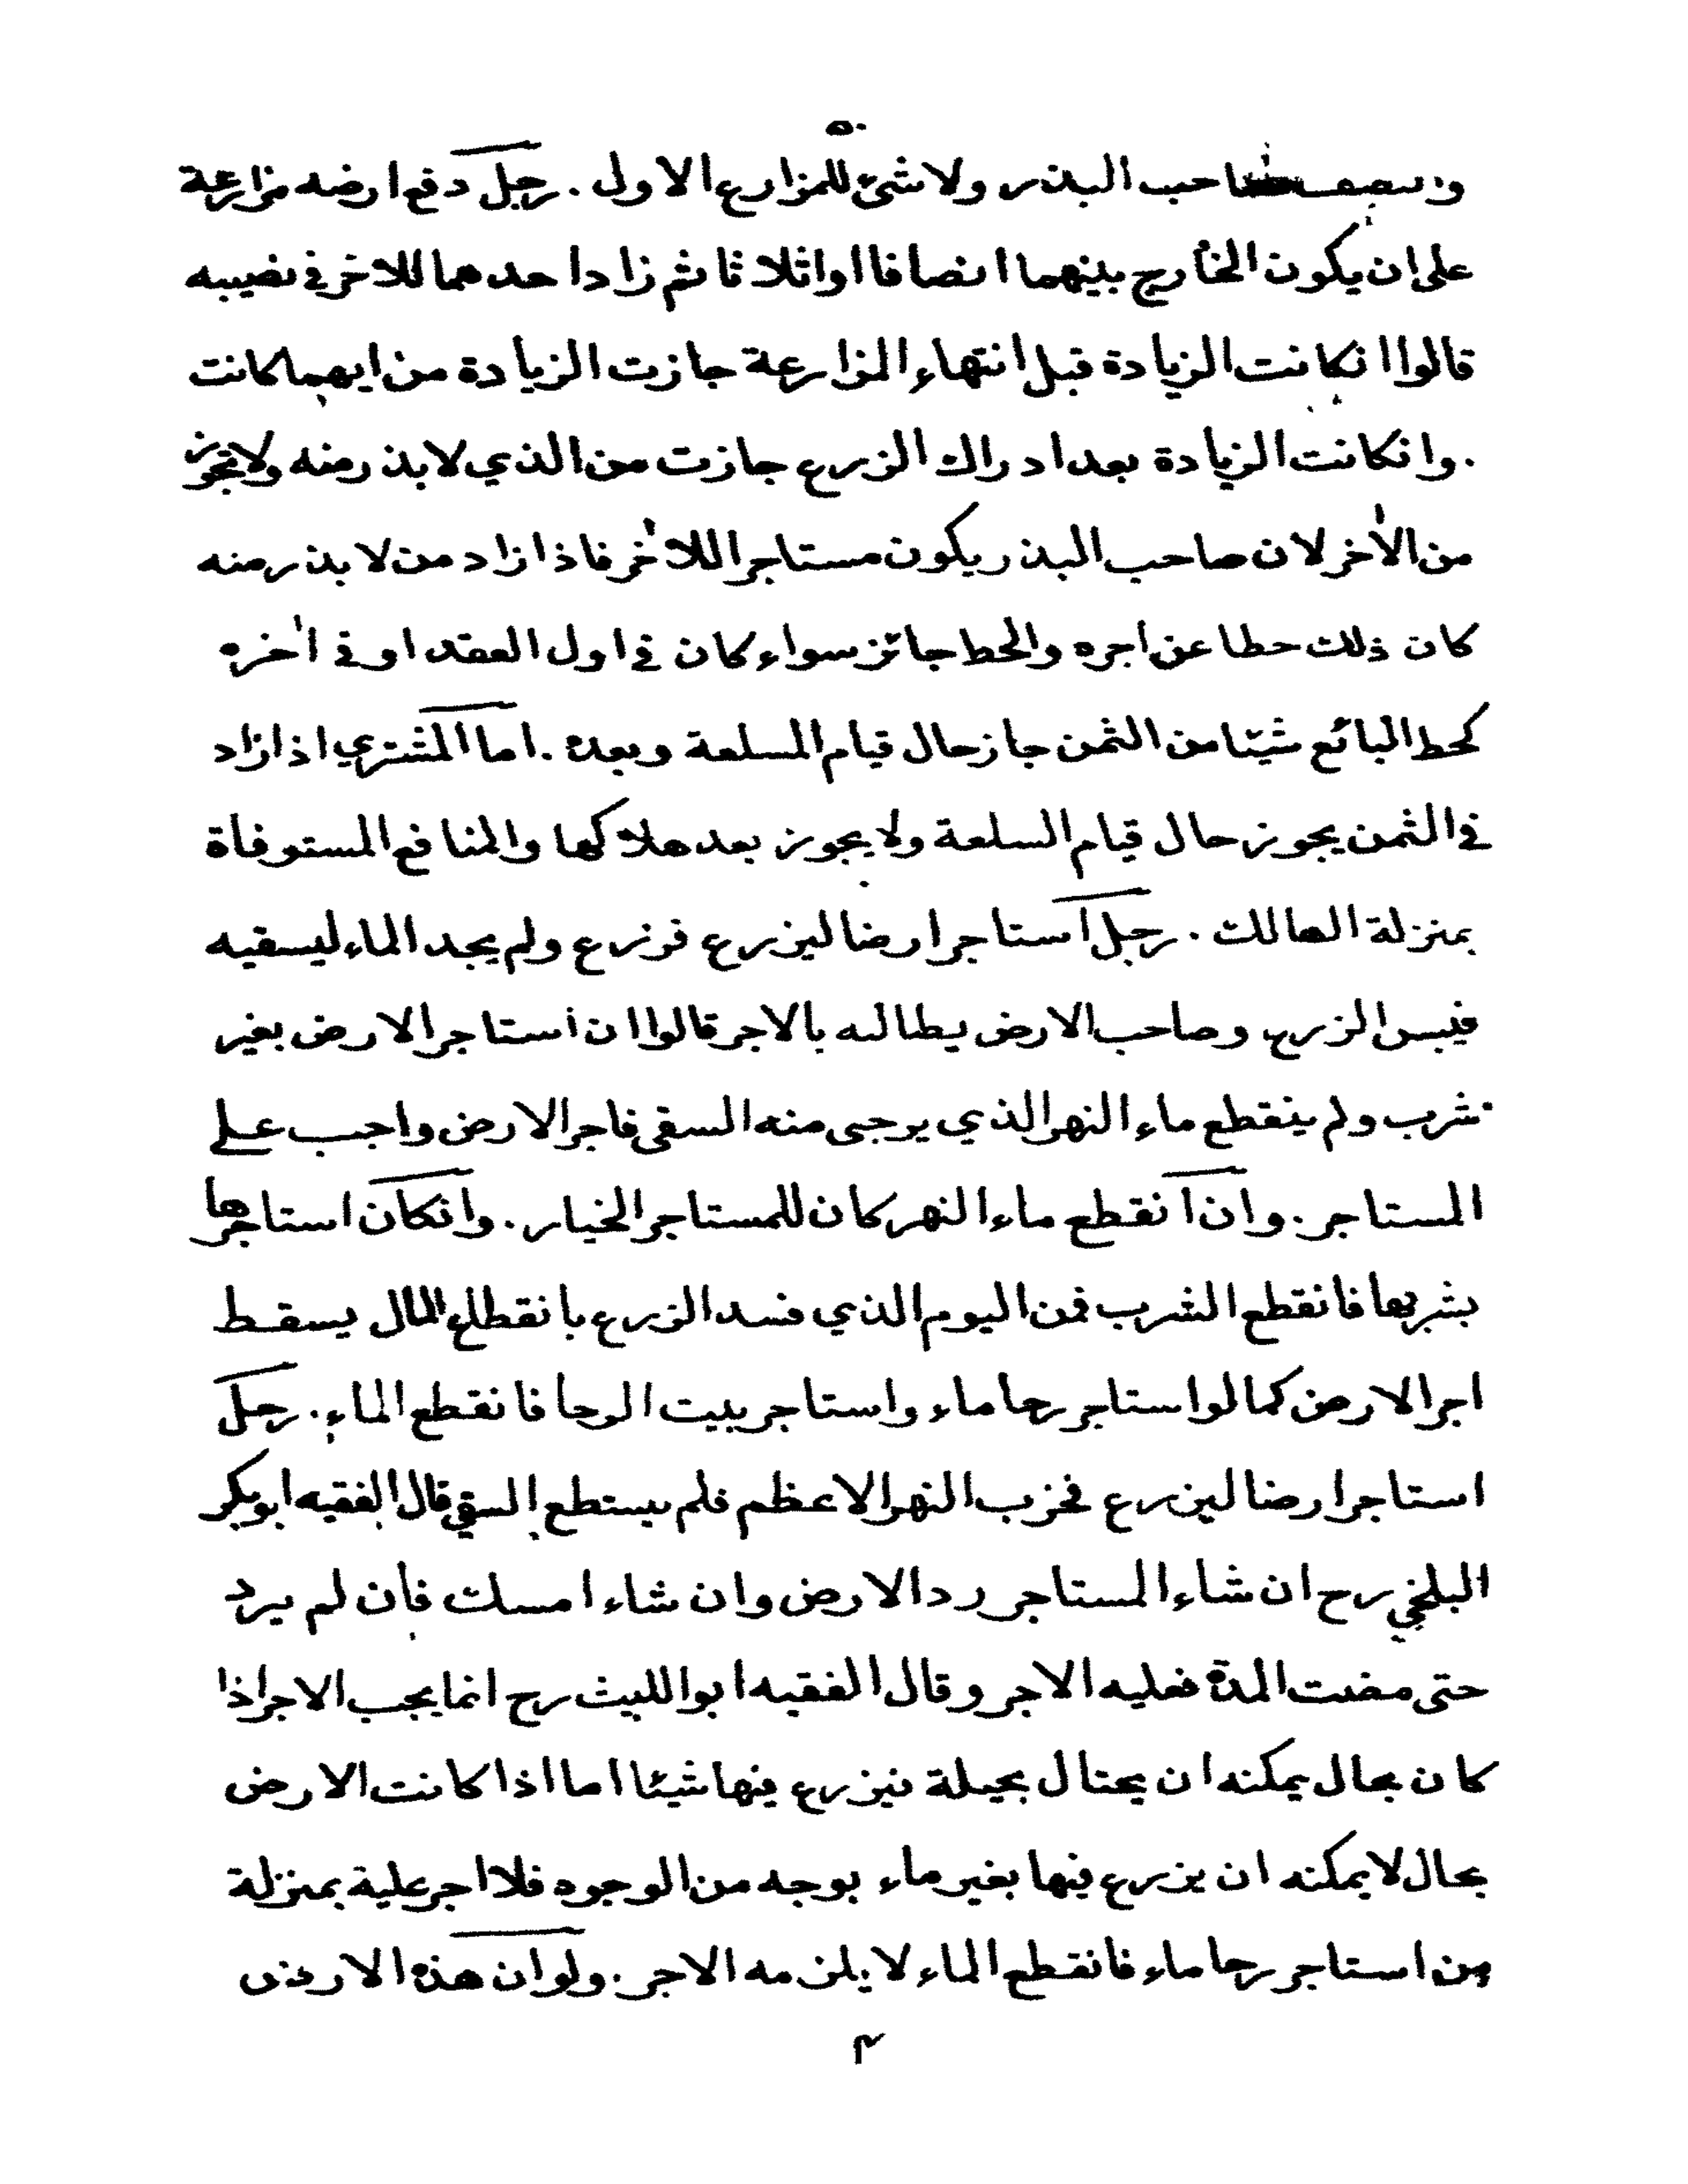 ٥٠
ونصف لصاحب البذر ولا شئ للمزارع الاول . رجل دفع ارضه مزارعة
على ان يكون الخارج بينهما انصافا او اثلاثا ثم زاد احدهما للاخر في نصيبه
قالوا انكانت الزيادة قبل انتهاء المزارعة جازت الزيادة من ايهما كانت
. وانكانت الزيادة بعد ادراك الزرع جازت من الذي لا بذر منه ولا تجوز
من الآخر لان صاحب البذر يكون مستاجرا للآخر فاذا زاد من لا بذر منه
كان ذلك حطا عن اجره والحط جائز سواء كان في اول العقد او في آخره
كحط البائع شيئا من الثمن جاز حال قيام السلعة وبعده . اما المشتري اذا زاد
في الثمن يجوز حال قيام السلعة ولا يجوز بعد هلاكها والمنافع المستوفاة
بمنزلة الهالك . رجل استاجر ارضا ليزرع فزرع ولم يجد الماء ليسقيه
فيبس الزرع وصاحب الارض يطالبه بالاجر قالوا ان استاجر الارض بغير
شرب ولم ينقطع ماء النهر الذي يرجى منه السقى فاجر الارض واجب على
المستاجر . وان انقطع ماء النهر كان للمستاجر الخيار . وانكان استاجرها
بشربها فانقطع الشرب فمن اليوم الذي فسد الزرع بانقطاع المال يسقط
اجر الارض كما لو استاجر رحا ماء واستاجر بيت الرحا فانقطع الماء . رجل
استاجر ارضا ليزرع فخرب النهر الاعظم فلم يستطع السقي قال الفقيه ابو بكر
البلخي رح ان شاء المستاجر رد الارض وان شاء امسك فان لم يرد
حتى مضت المدة فعليه الاجر وقال الفقيه ابو الليث رح انما يجب الاجر اذا
كان بحال يمكنه ان يحتال بحيلة فيزرع فيها شيئا اما اذا كانت الارض
بحال لا يمكنه ان يزرع فيها بغير ماء بوجه من الوجوه فلا اجر عليه بمنزلة
من استاجر رحا ماء فانقطع الماء لا يلزمه الاجر . ولو ان هذه الارض
م